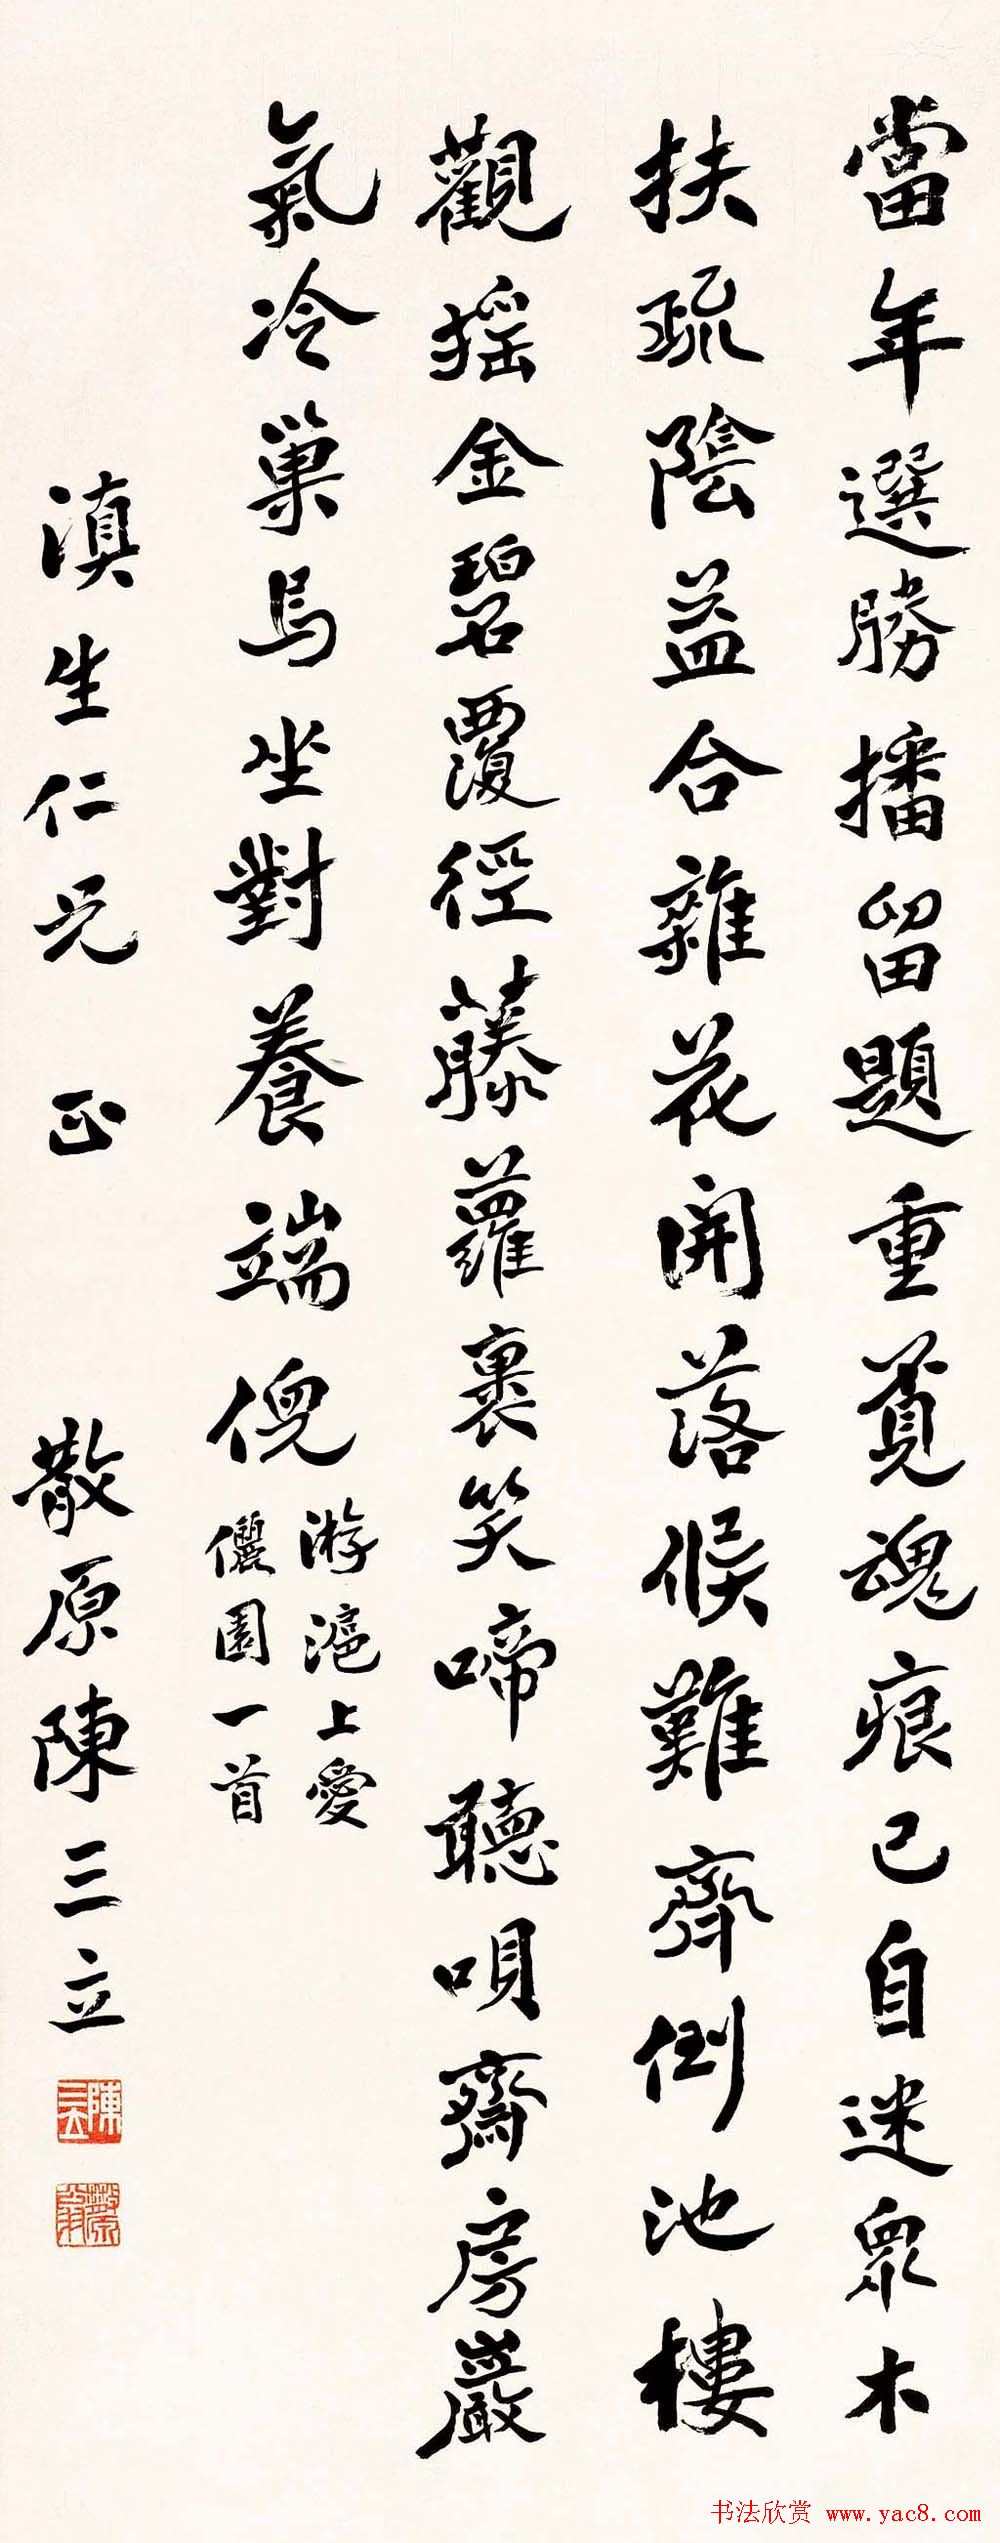 當年選勝播留題重覓魂痕已自迷眾木
扶疏陰益合雜花開落候難齊倒池樓
觀摇金碧覆徑藤蘿裹笑啼聽唄齋房巖
氣冷巢烏坐對養端倪
游滬上愛
儷園一首
滇生仁兄 正 散原陳三立
陳三立
书法欣赏 www.yac8.com